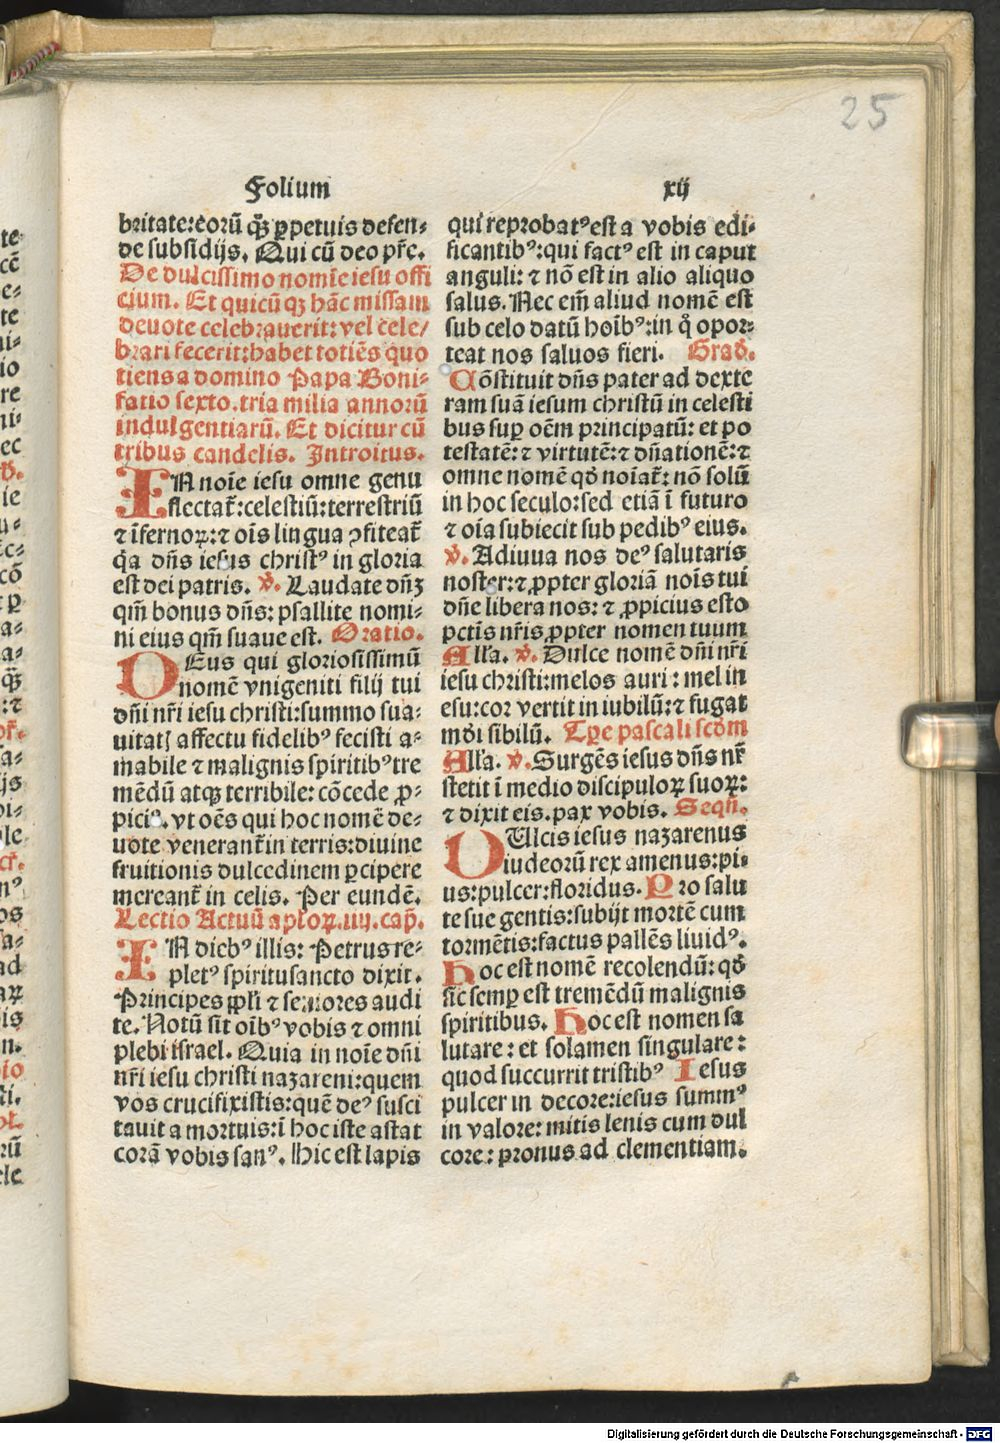 25
Folium xij
britate: eorū q̄ꝫ ꝑpetuis defen⸗
de subsidijs. Qui cū deo pr̄e.
De dulcissimo nomīe iesu offi
cium. Et quicū qꝫ hāc missam
deuote celebrauerit: vel cele/
brari fecerit: habet totiēs quo
tiens a domino Papa Boni⸗
fatio sexto. tria milia annorū
indulgentiarū. Et dicitur cū
tribus candelis. Introitus.
IN noīe iesu omne genu
flectat᷑: celestiū: terrestriū
⁊ īfernoꝝ: ⁊ oīs lingua ꝓfiteat᷑
q̄a dn̄s iesus christꝰ in gloria
est dei patris. ℣. Laudate dn̄ꝫ
qm̄ bonus dn̄s: psallite nomi⸗
ni eius qm̄ suaue est. Oratio.
DEus qui gloriosissimū
nomē vnigeniti filij tui
dn̄i nr̄i iesu christi: summo sua⸗
uitatꝭ affectu fidelibꝰ fecisti a⸗
mabile ⁊ malignis spiritibꝰ tre
mēdū atqꝫ terribile: cōcede ꝓ⸗
piciꝰ. vt oēs qui hoc nomē de⸗
uote venerant᷑ in terris: diuine
fruitionis dulcedinem ꝑcipere
mereant᷑ in celis. Per eundē.
Lectio Actuū aploꝝ. iiij. cap̄.
IN diebꝰ illis: Petrus re⸗
pletꝰ spiritusancto dixit.
Principes ppl̄i ⁊ seniores audi
te. Notū sit oībꝰ vobis ⁊ omni
plebi israel. Quia in noīe dn̄i
nr̄i iesu christi nazareni: quem
vos crucifixistis: quē deꝰ susci
tauit a mortuis: ī hoc iste astat
corā vobis sanꝰ. Hic est lapis
qui reprobatꝰ est a vobis edi⸗
ficantibꝰ: qui factꝰ est in caput
anguli: ⁊ nō est in alio aliquo
salus. Nec em̄ aliud nomē est
sub celo datū hoībꝰ: in q̊ opor⸗
teat nos saluos fieri. Grad̄.
Cōstituit dn̄s pater ad dexte
ram suā iesum christū in celesti
bus suꝑ oēm principatū: et po
testatē: ⁊ virtutē: ⁊ dn̄ationē: ⁊
omne nomē qd̄ noīat᷑: nō solū
in hoc seculo: sed etiā ī futuro
⁊ oīa subiecit sub pedibꝰ eius.
℣. Adiuua nos deꝰ salutaris
noster: ⁊ ꝓpter gloriā noīs tui
dn̄e libera nos: ⁊ ꝓpicius esto
pctīs nr̄is ꝓpter nomen tuum
All'a. ℣. Dulce nomē dn̄i nr̄i
iesu christi: melos auri: mel in
esu: cor vertit in iubilū: ⁊ fugat
mōi sibilū. Tꝑe pascali scd̄m
All'a. ℣. Surgēs iesus dn̄s nr̄
stetit ī medio discipuloꝝ suoꝝ:
⁊ dixit eis. pax vobis. Seqū.
DUlcis iesus nazarenus
iudeorū rex amenus: pi⸗
us: pulcer: floridus. Pro salu
te sue gentis: subijt mortē cum
tormētis: factus pallēs liuidꝰ.
Hoc est nomē recolendū: qd̄
sic semꝑ est tremēdū malignis
spiritibus. Hoc est nomen sa
lutare: et solamen singulare:
quod succurrit tristibꝰ Iesus
pulcer in decore: iesus summꝰ
in valore: mitis lenis cum dul
core: pronus ad clementiam.
Digitalisierung gefördert durch die Deutsche Forschungsgemeinschaft - DFG